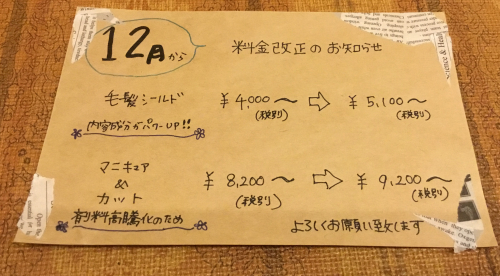 12月から
料金改正のお知らせ
毛髪シールド ¥4,000〜 ⇨ ¥5,100〜
(税別) (税別)
内容成分がパワーUP!!
マニキュア
&
カット
¥8,200〜 ⇨ ¥9,200〜
(税別) (税別)
剤料高騰化のため
よろしくお願い致します
Science & Heal